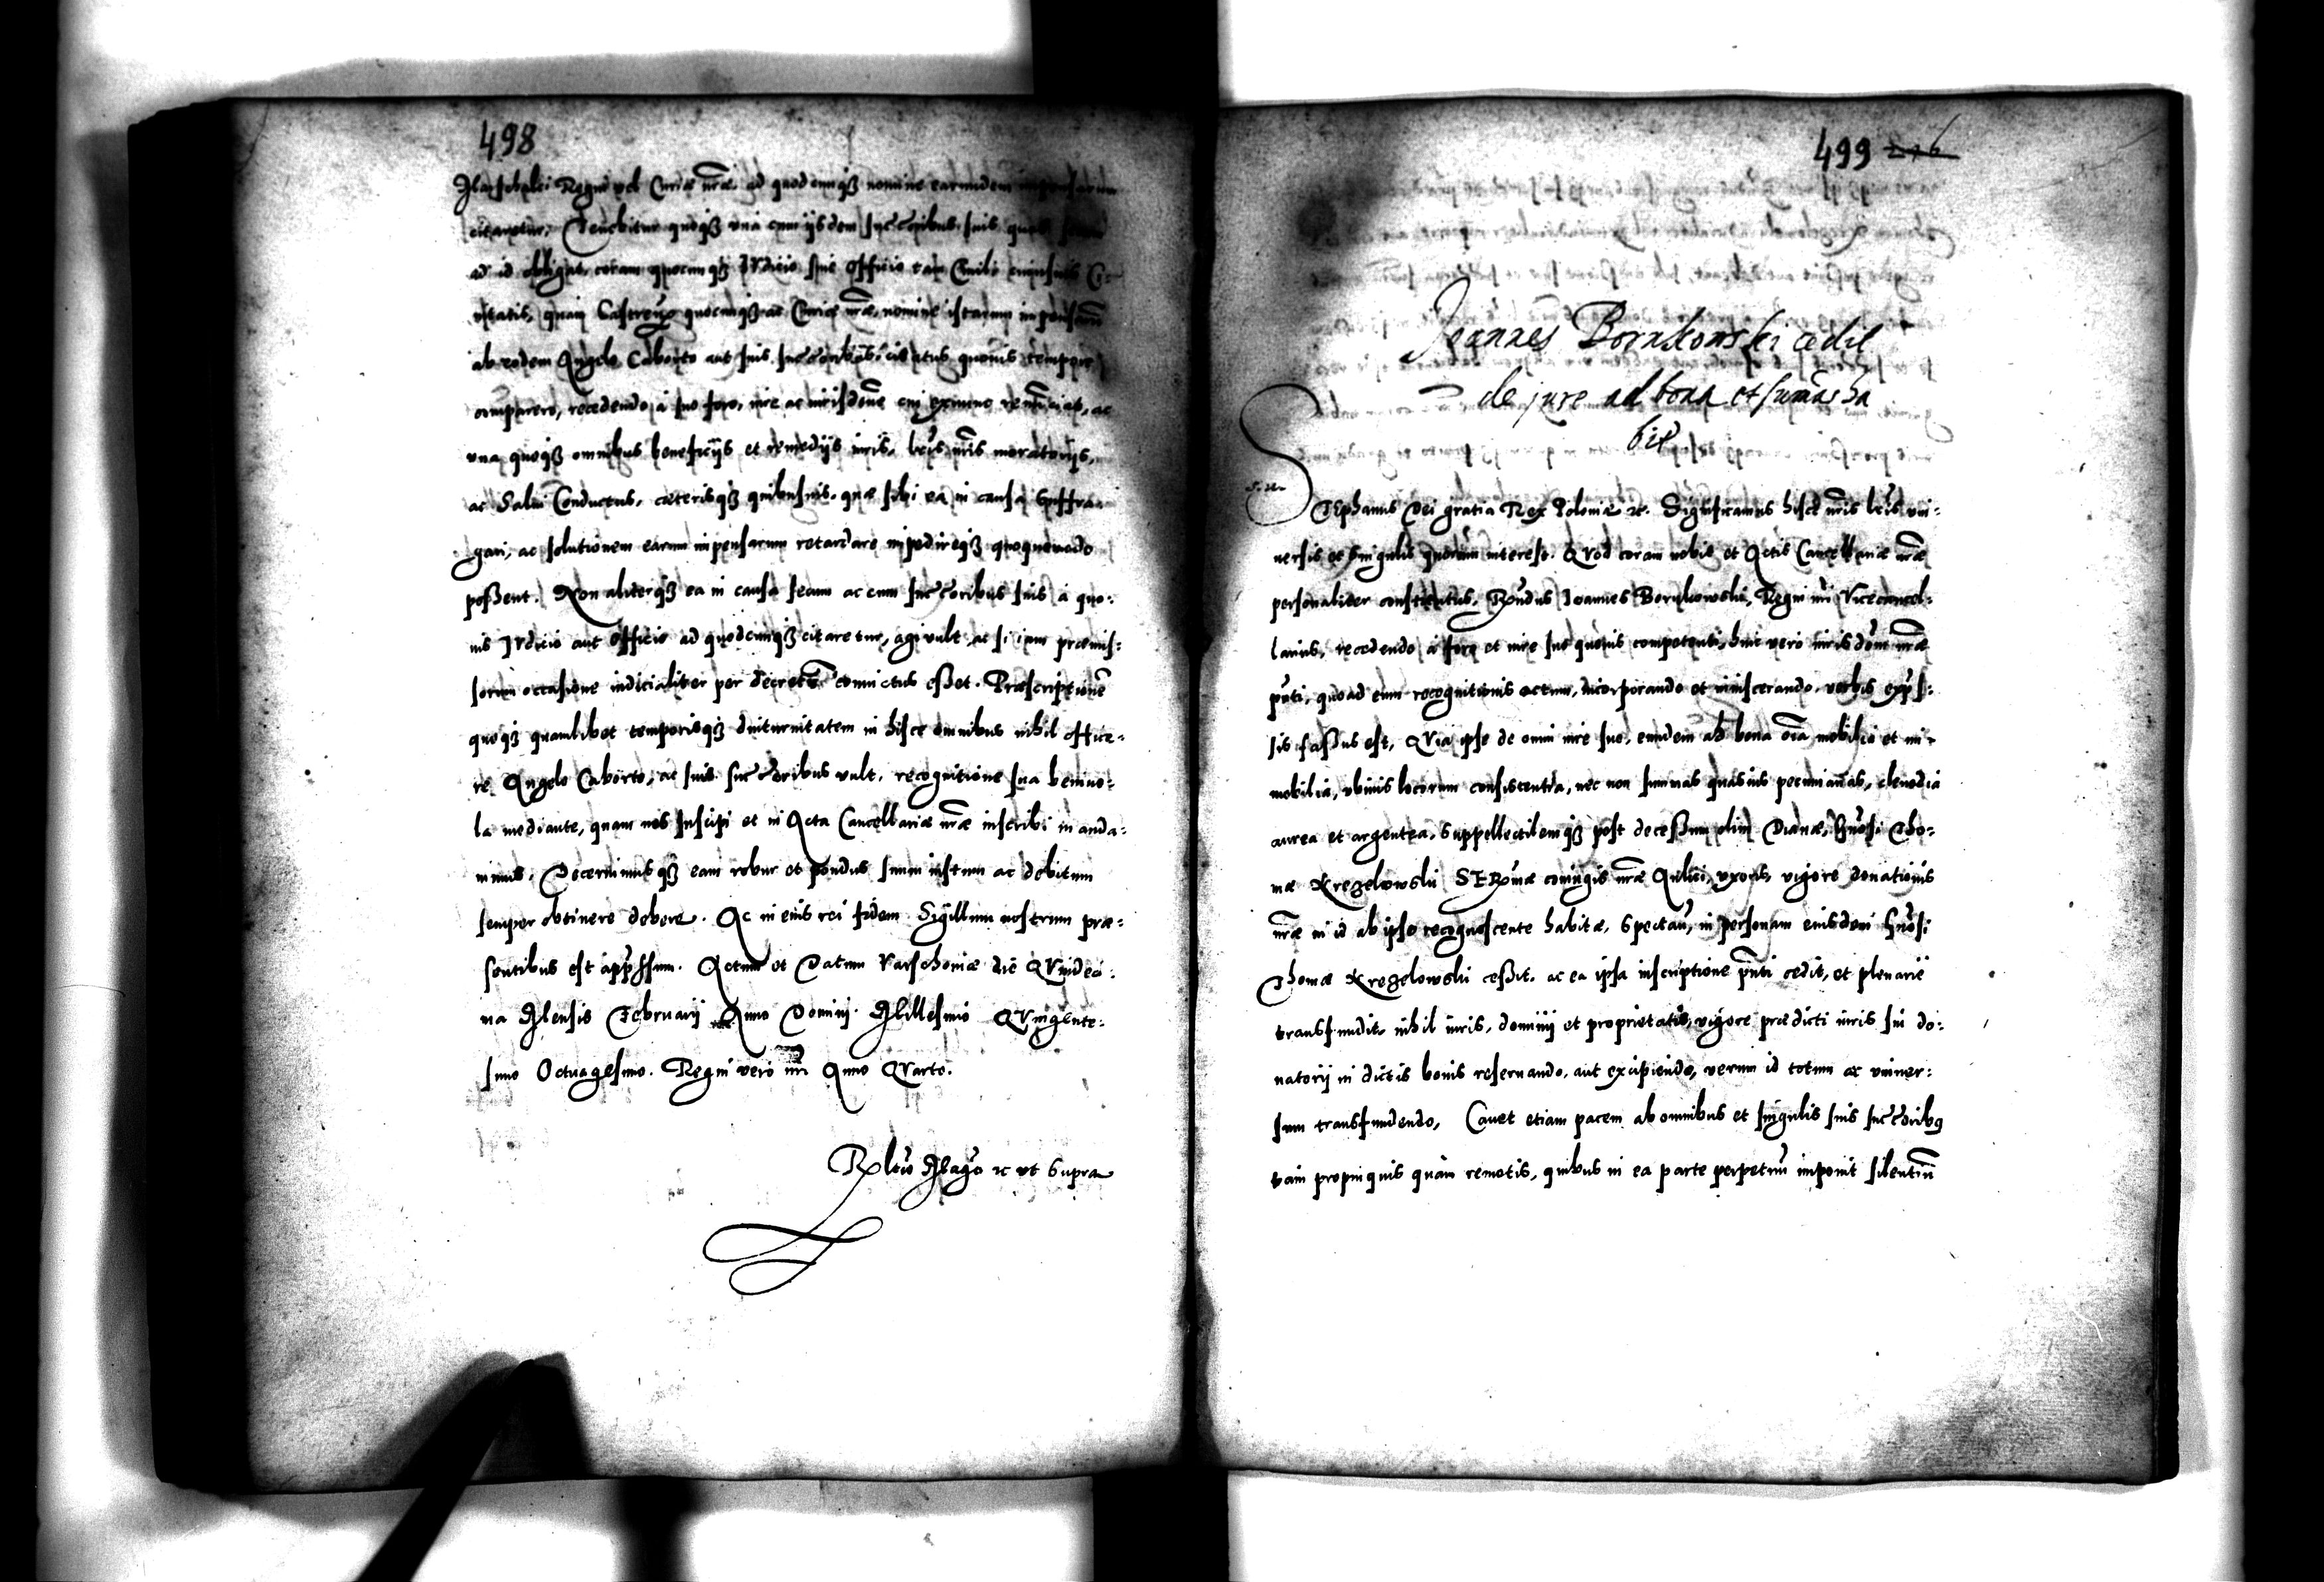 498
Marschalci Regni vel Curiæ nr̃æ. ad quodcunq3 nomine earundem impensarum
citaretur, Tenebitur quoq3 vna cum ijsdem succeßoribus suis, quos
ad id obligat, coram quocunq3 Iudicio siue Officio tam Ciuili cuiusuis Ci-
uitatis, quam Castren̄ quocunq3 ac Curiæ nr̃æ, nomine istarum impensarū
ab eodem Angelo Caborto aut suis succeßoribus citatus quouis tempore
comparere, recedendo à suo foro, iure ac iurisdic̃one cui ex nunc renūciat, ac
vna quoq3 omnibus beneficijs et remedijs iuris, lr̃is nr̃is moratorijs,
ac Salui Conductus, cæterisq3 quibusuis, quæ sibi ea in causa Suffra-
gari, ac solutionem earum impensarum retardare impedireq3 quoquomodo
poßent. Non aliterq3 ea in causa secum ac cum succeßoribus suis à quo:
uis Iudicio aut Officio ad quodcunq3 citaretur, agi vult ac si iam præmis:
sorum occasione iudicialiter per decretū conuictus eßet. Præscriptionē
quoq3 quamlibet temporisq3 diuturnitatem in hisce omnibus nihil office-
re Angelo Caborto, ac suis succeßoribus vult, recognitione sua beniuo:
la mediante, quam nos suscipi et in Acta Cancellariæ nr̃æ inscribi manda:
uimus. Decernimusq3 eam robur et pondus suum iustum ac debitum
semper obtinere debere. Ac in eius rei fidem Sigillum nostrum præ:
sentibus est app̃ssum. Actum et Datum Varschouiæ die Quinde­ci:
na Mensis Februarij Anno Domini Millesimo Quingente:
simo Octuagesimo. Regni vero nr̃i Anno Quarto.
Rltio Mag̃ci 2c vt Supra
499 276
Joannes Borukowski cedit
de jure ad bona et sumas ha
bit
S. R.
STEphanus Dei gratia Rex Poloniæ 2c. Significamus hisce nr̃is lr̃is vni:
uersis et Singulis quorum interest. Quod coram nobis et Actis Cancellariæ nr̃æ
personaliter constitutus, Rn̄dus Ioannes Borukowski, Regni nr̃i Vicecancel:
larius, recedendo à foro et iure suo quouis competenti, huic vero iurisdic̃oni nr̃æ
pn̄ti, quoad eum recognitionis actum, incorporando et inuiscerando. verbis exp̃s:
sis faßus est, Quia ipse de omni iure suo, eundem ad bona oīa mobilia et im-
mobilia, vbiuis locorum consistentia, nec non summas quasuis pecuniarias, clenodia
aurea et argentea, Suppellectilemq3 post deceßum olim Dianæ, Gn̄osi Tho:
mæ Krezelowski SERmæ coniugis nr̃æ Aulici, vxoris, vigore donationis
nr̃æ in id ab ipso recognoscente habitæ, Spectan̄, in personam eiusdem Gn̄osi
Thomæ Krezelowski ceßit. ac ea ipsa inscriptione pn̄ti cedit, et plenariè
transfundit, nihil iuris, dominij et proprietatis, vigore prædicti iuris sui do:
natorij in dictis bonis reseruando, aut excipiendo, verum id totum ac vniuer:
sum transfundendo, Cauet etiam pacem ab omnibus et singulis suis succeßorib9
tam propinquis quàm remotis, quibus in ea parte perpetuū imponit silentiū